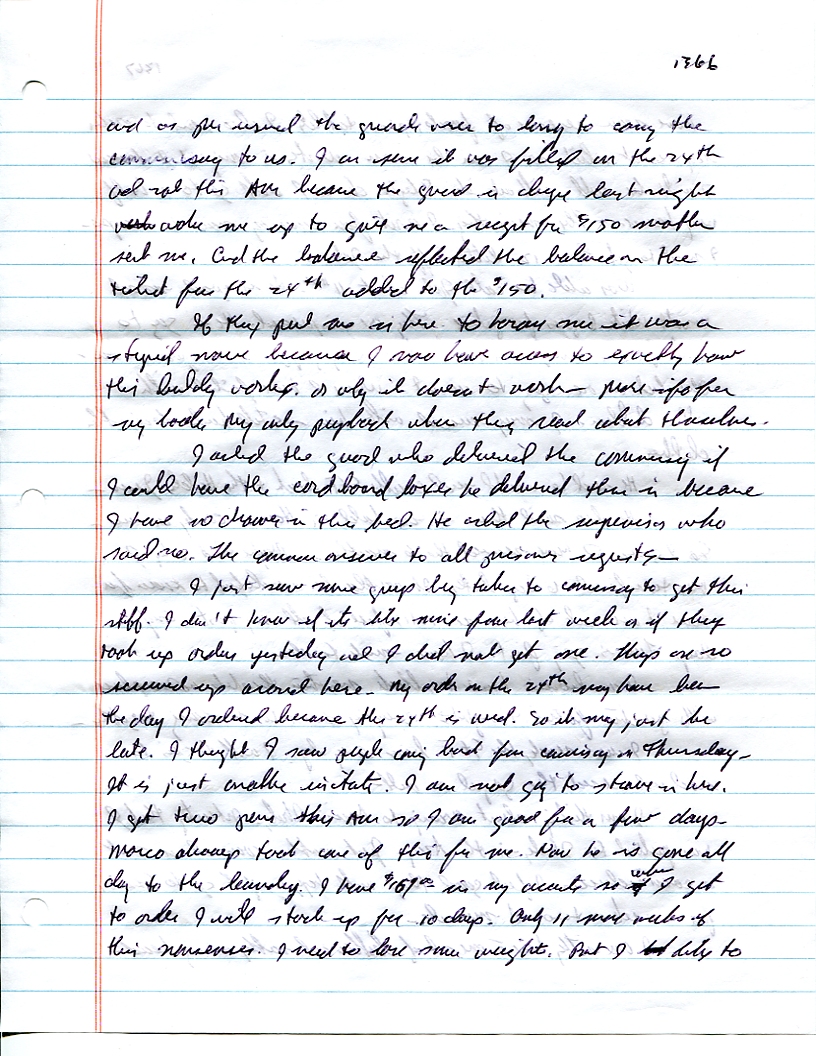 1366
and as per usual the guards were to long to carry the
commissary to us. I am sure it was filled on the 24th
and not this AM because the guard in charge last night
woke me up to give me a receipt for $150 mother
sent me. And the balance reflected the balance on the
ticket for the 24th added to the $150.
If they put me in here to me it was a
stupid move because I now have access to exactly how
this building works. or why it doesn't work— More info for
my book. My only payback when they read about themselves.
I asked the guard who delivered the commissary if
I could have the cardboard boxes he delivered this in because
I have no drawer in this bed. He asked the supervisor who
said no. The common answer to all prisoner requests—
I just saw some guys being taken to commissary to get their
stuff. I don't know if its like mine from last week or if they
took up orders yesterday and I did not get one. Things are so
screwed up around here. My order on the 24th may have been
the day I ordered because the 24th is wed. So it may just be
late. I thought I saw people coming back from commissary on Thursday—
It is just another irritate. I am not going to starve in here.
I got two this AM so I am good for a few days—
Marco always took care of this for me. Now he is gone all
day to the laundry. I have $169 in my accounts so when I get
to order I will stock up for 10 days. Only 11 more weeks of
this nonsenses. I need to lose some weight. But I to